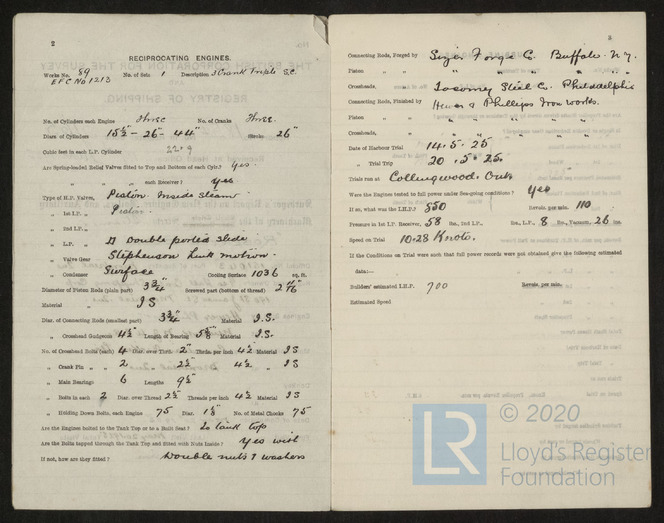 2
RECIPROCATING ENGINES.
Works No. 89 No. of Sets 1 Description 3 Crank Triple S.C.
EFC No 1213
No. of Cylinders each Engine Three No. of Cranks Three
Diars of Cylinders 15½ - 26 - 44" Stroke 26"
Cubic feet in each L.P. Cylinder 22.9
Are Spring-loaded Relief Valves fitted to Top and Bottom of each Cylr.? Yes
" " " each Receiver? Yes
Type of H.P. Valves, Piston Inside Steam
" 1st I.P. " Piston
" 2nd I.P. "
" L.P. " D Double ported slide
" Valve Gear Stephenson Link motion
" Condenser Surface Cooling Surface 1036 sq. ft.
Diameter of Piston Rods (plain part) 3¾" Screwed part (bottom of thread)
Material I S
Diar. of Connecting Rods (smallest part) 3¾" Material I.S.
" Crosshead Gudgeons 4½ Length of Bearing Material I.S.
No. of Crosshead Bolts (each) 4 Diar. over Thrd. 2" Thrds. per inch 4½ Material I S
" Crank Pin " " 2 " 2½" " 4½ " I S
" Main Bearings 6 Lengths 9½"
" Bolts in each 2 Diar. over Thread 2½" Threads per inch 4½ Material I S
" Holding Down Bolts, each Engine 75 Diar. 1⅛" No. of Metal Chocks 75
Are the Engines bolted to the Tank Top or to a Built Seat? To tank top
Are the Bolts tapped through the Tank Top and fitted with Nuts Inside? Yes with
If not, how are they fitted? Double nuts & washers
3
Connecting Rods, Forged by Forge Co. Buffalo N.Y.
Piston " " " " " "
Crossheads, " Steel Co. Philadelphia
Connecting Rods, Finished by & Phillips Iron works.
Piston " " " " " "
Crossheads, " " " " "
Date of Harbour Trial 14.5.25
" Trial Trip 20.5.25.
Trials run at Collingwood. Ont
Were the Engines tested to full power under Sea-going conditions? Yes
If so, what was the I.H.P.? 850 Revols. per min. 110
Pressure in 1st I.P. Receiver, 58 lbs., 2nd I.P., lbs., L.P. 8 lbs., Vacuum, 26 ins.
Speed on Trial 10.28 Knots.
If the Conditions on Trial were such that full power records were not obtained give the following estimated
data:—
Builders' estimated I.H.P. 700 Revols. per min.
Estimated Speed
© 2020
LR Lloyd's Register
Foundation